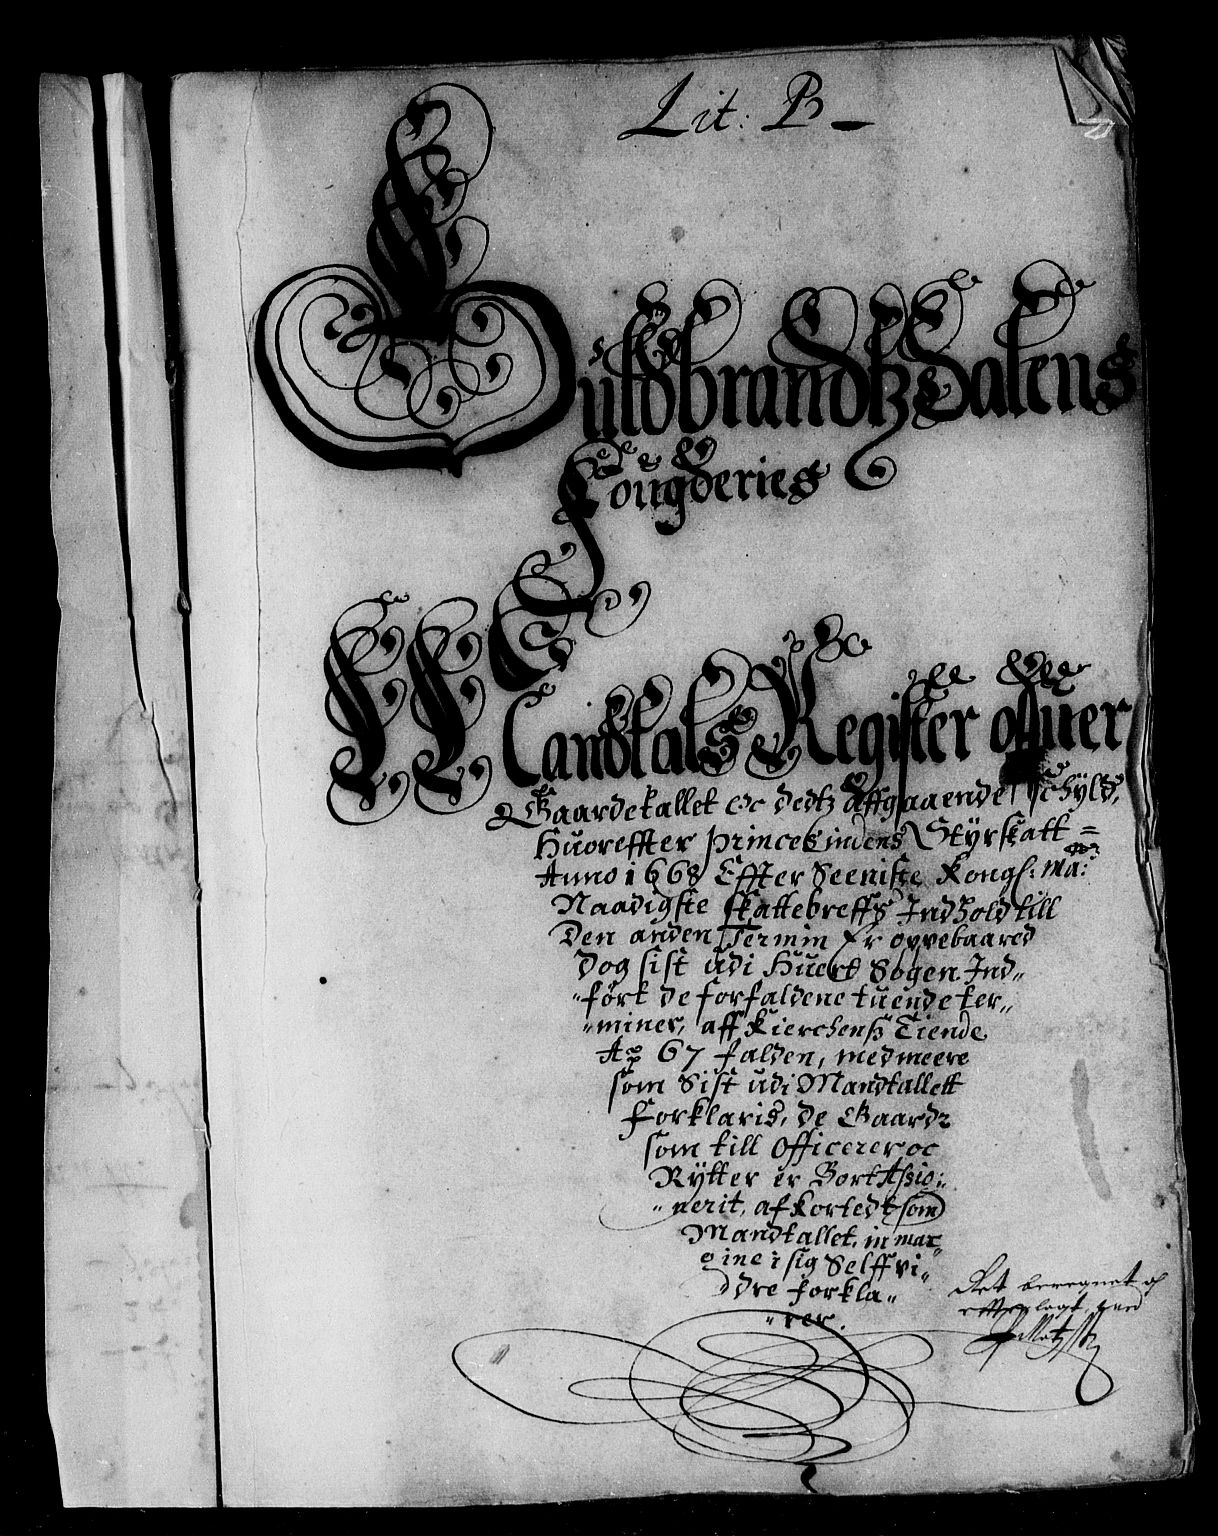 Lit: B
Guldbrandtz Dalens
Fougderies
Mandtals Register offuer
Gaardetallet oc dedtz affgaaende Schyld,
Huoreffter Princesindens Styrskatt
Anno 1668 Effter Seeniste Kongl: Ma:
Naadigste skattebreffs Indhold till
den anden Termin Er oppebaared
dog sist udi Huert Sogen Ind„
„ført de forfaldene tuende ter„
„miner, aff Kierchens Tiende
Ao 67 falden, med meere
som Sist udi Mandtallett
forklaris, de Gaardr
som till Officerer oc
Rytter er Bort Assig„
„nerit, afkortedt som
Mandtallet, in mar„
gine i sig Selff vi„
„dre forkla„
„rer.
Det beregnet og
efterlagt,